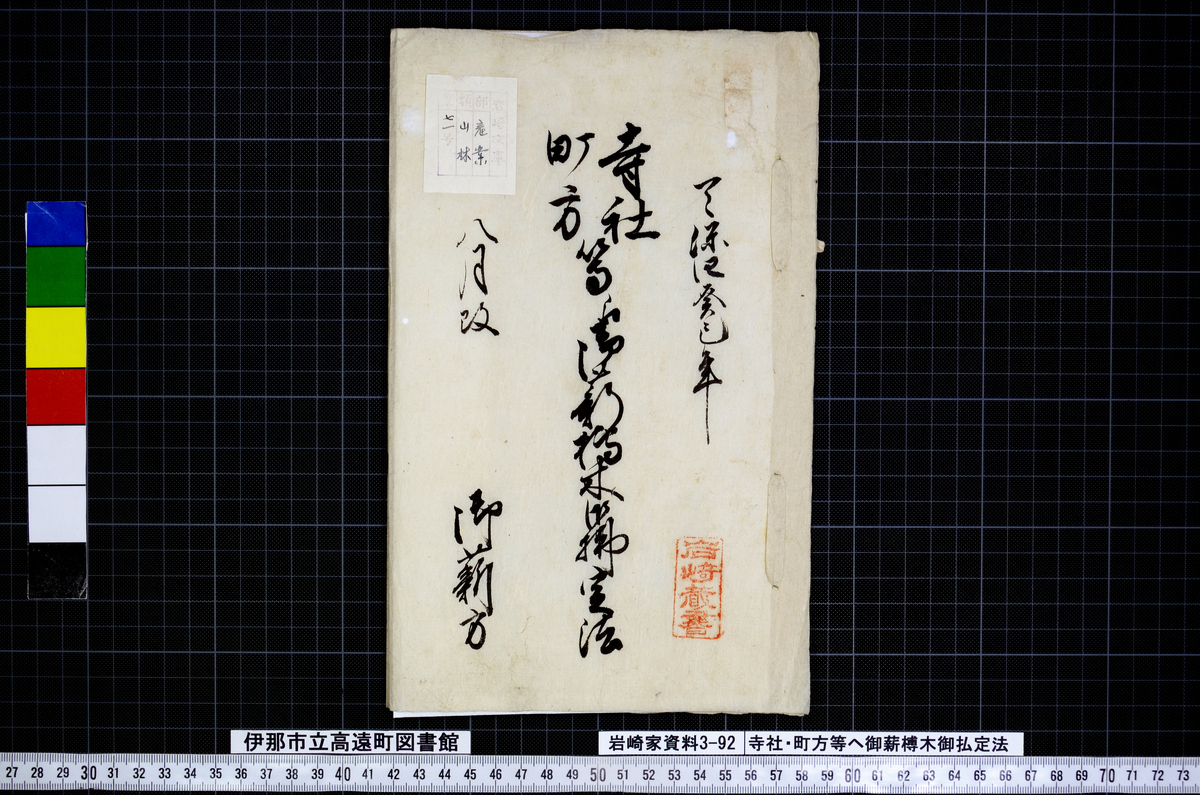 天保四癸巳年
寺社
町方
等へ御薪榑木御払定法
八月改
御薪方
岩崎蔵書
岩崎文庫
部 産業
山林
七一号
伊那市立高遠町図書館
岩崎家資料3-92
寺社・町方等へ御薪榑木御払定法
27 28 29 30 31 32 33 34 35 36 37 38 39 40 41 42 43 44 45 46 47 48 49 50 51 52 53 54 55 56 57 58 59 60 61 62 63 64 65 66 67 68 69 70 71 72 73